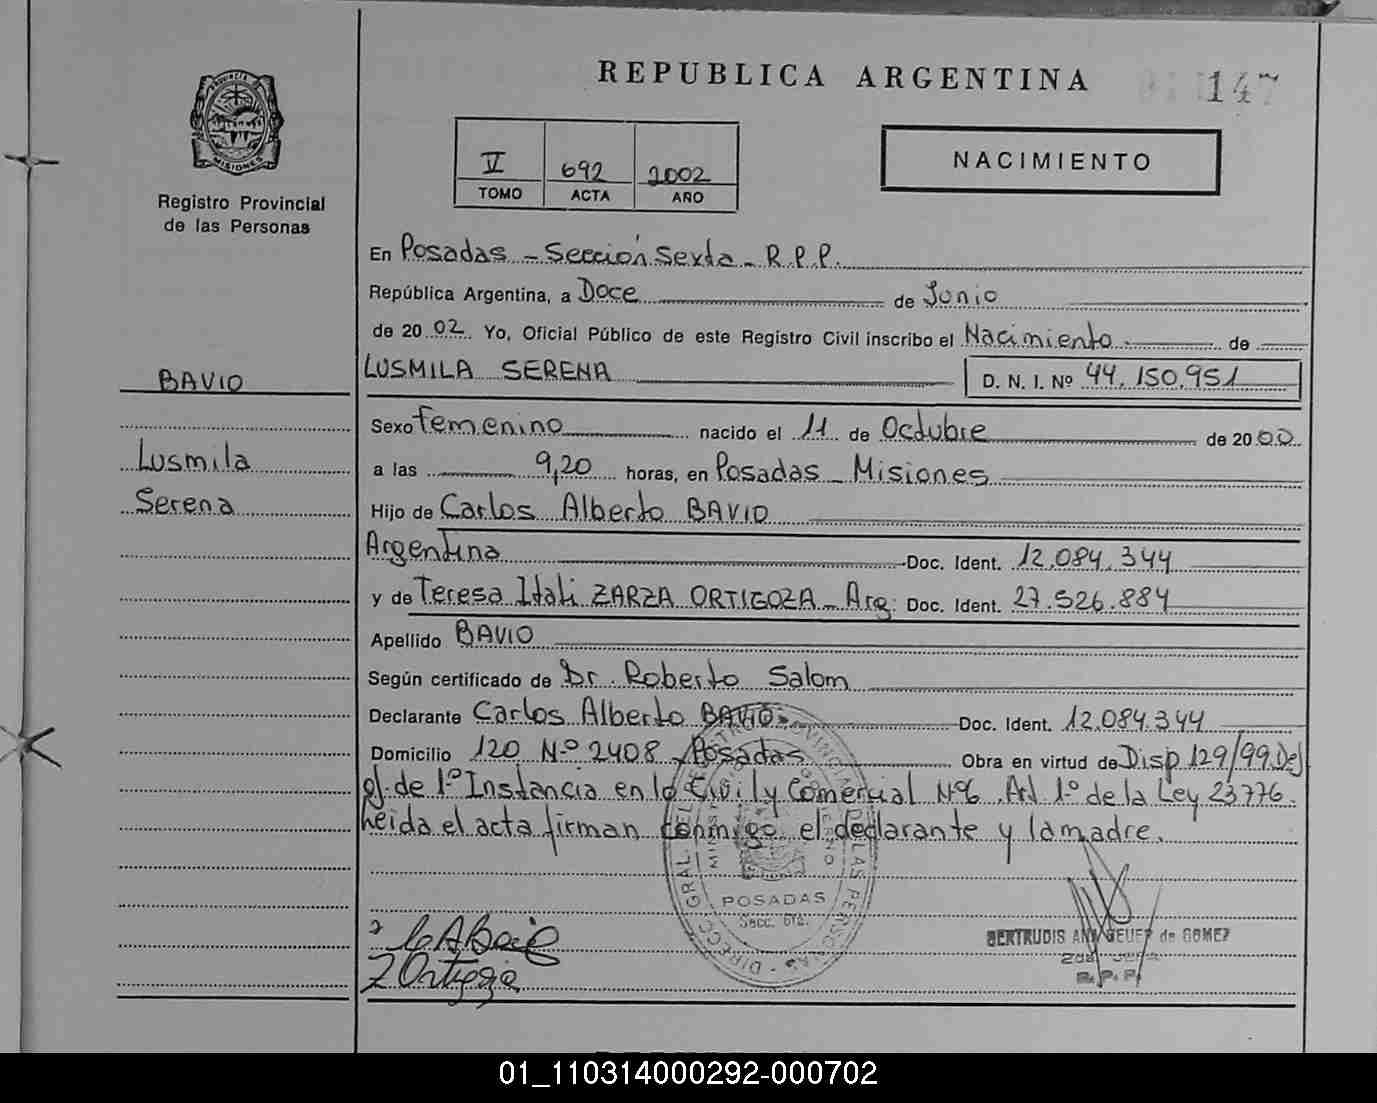 REPUBLICA ARGENTINA
147
PROVINCIA DE
MISIONES
Registro Provincial
de las Personas
V 692 2002
TOMO ACTA AÑO
NACIMIENTO
En Posadas - Sección Sexta - R.P.P.
República Argentina, a Doce de Junio
de 2002 Yo, Oficial Público de este Registro Civil inscribo el Nacimiento de
LUSMILA SERENA D. N. I. Nº 44.150.951
BAVIO
Lusmila
Serena
Sexo Femenino nacido el 11 de Octubre de 2000
a las 9,20 horas, en Posadas - Misiones
Hijo de Carlos Alberto BAVIO
Argentina Doc. Ident. 12.084.344
y de Teresa Itali ZARZA ORTIGOZA - Arg. Doc. Ident. 27.526.884
Apellido BAVIO
Según certificado de Dr. Roberto Salom
Declarante Carlos Alberto BAVIO Doc. Ident. 12.084.344
Domicilio 120 Nº 2408 - Posadas Obra en virtud de Disp 129/99 Del
gj. de 1º Instancia en lo Civil y Comercial Nº6. Art 1º de la Ley 23776.
heida el acta firman conmigo el declarante y la madre.
POSADAS
Secc. 6ta.
GERTRUDIS ANA de GOMEZ
R.P.P.
01_110314000292-000702